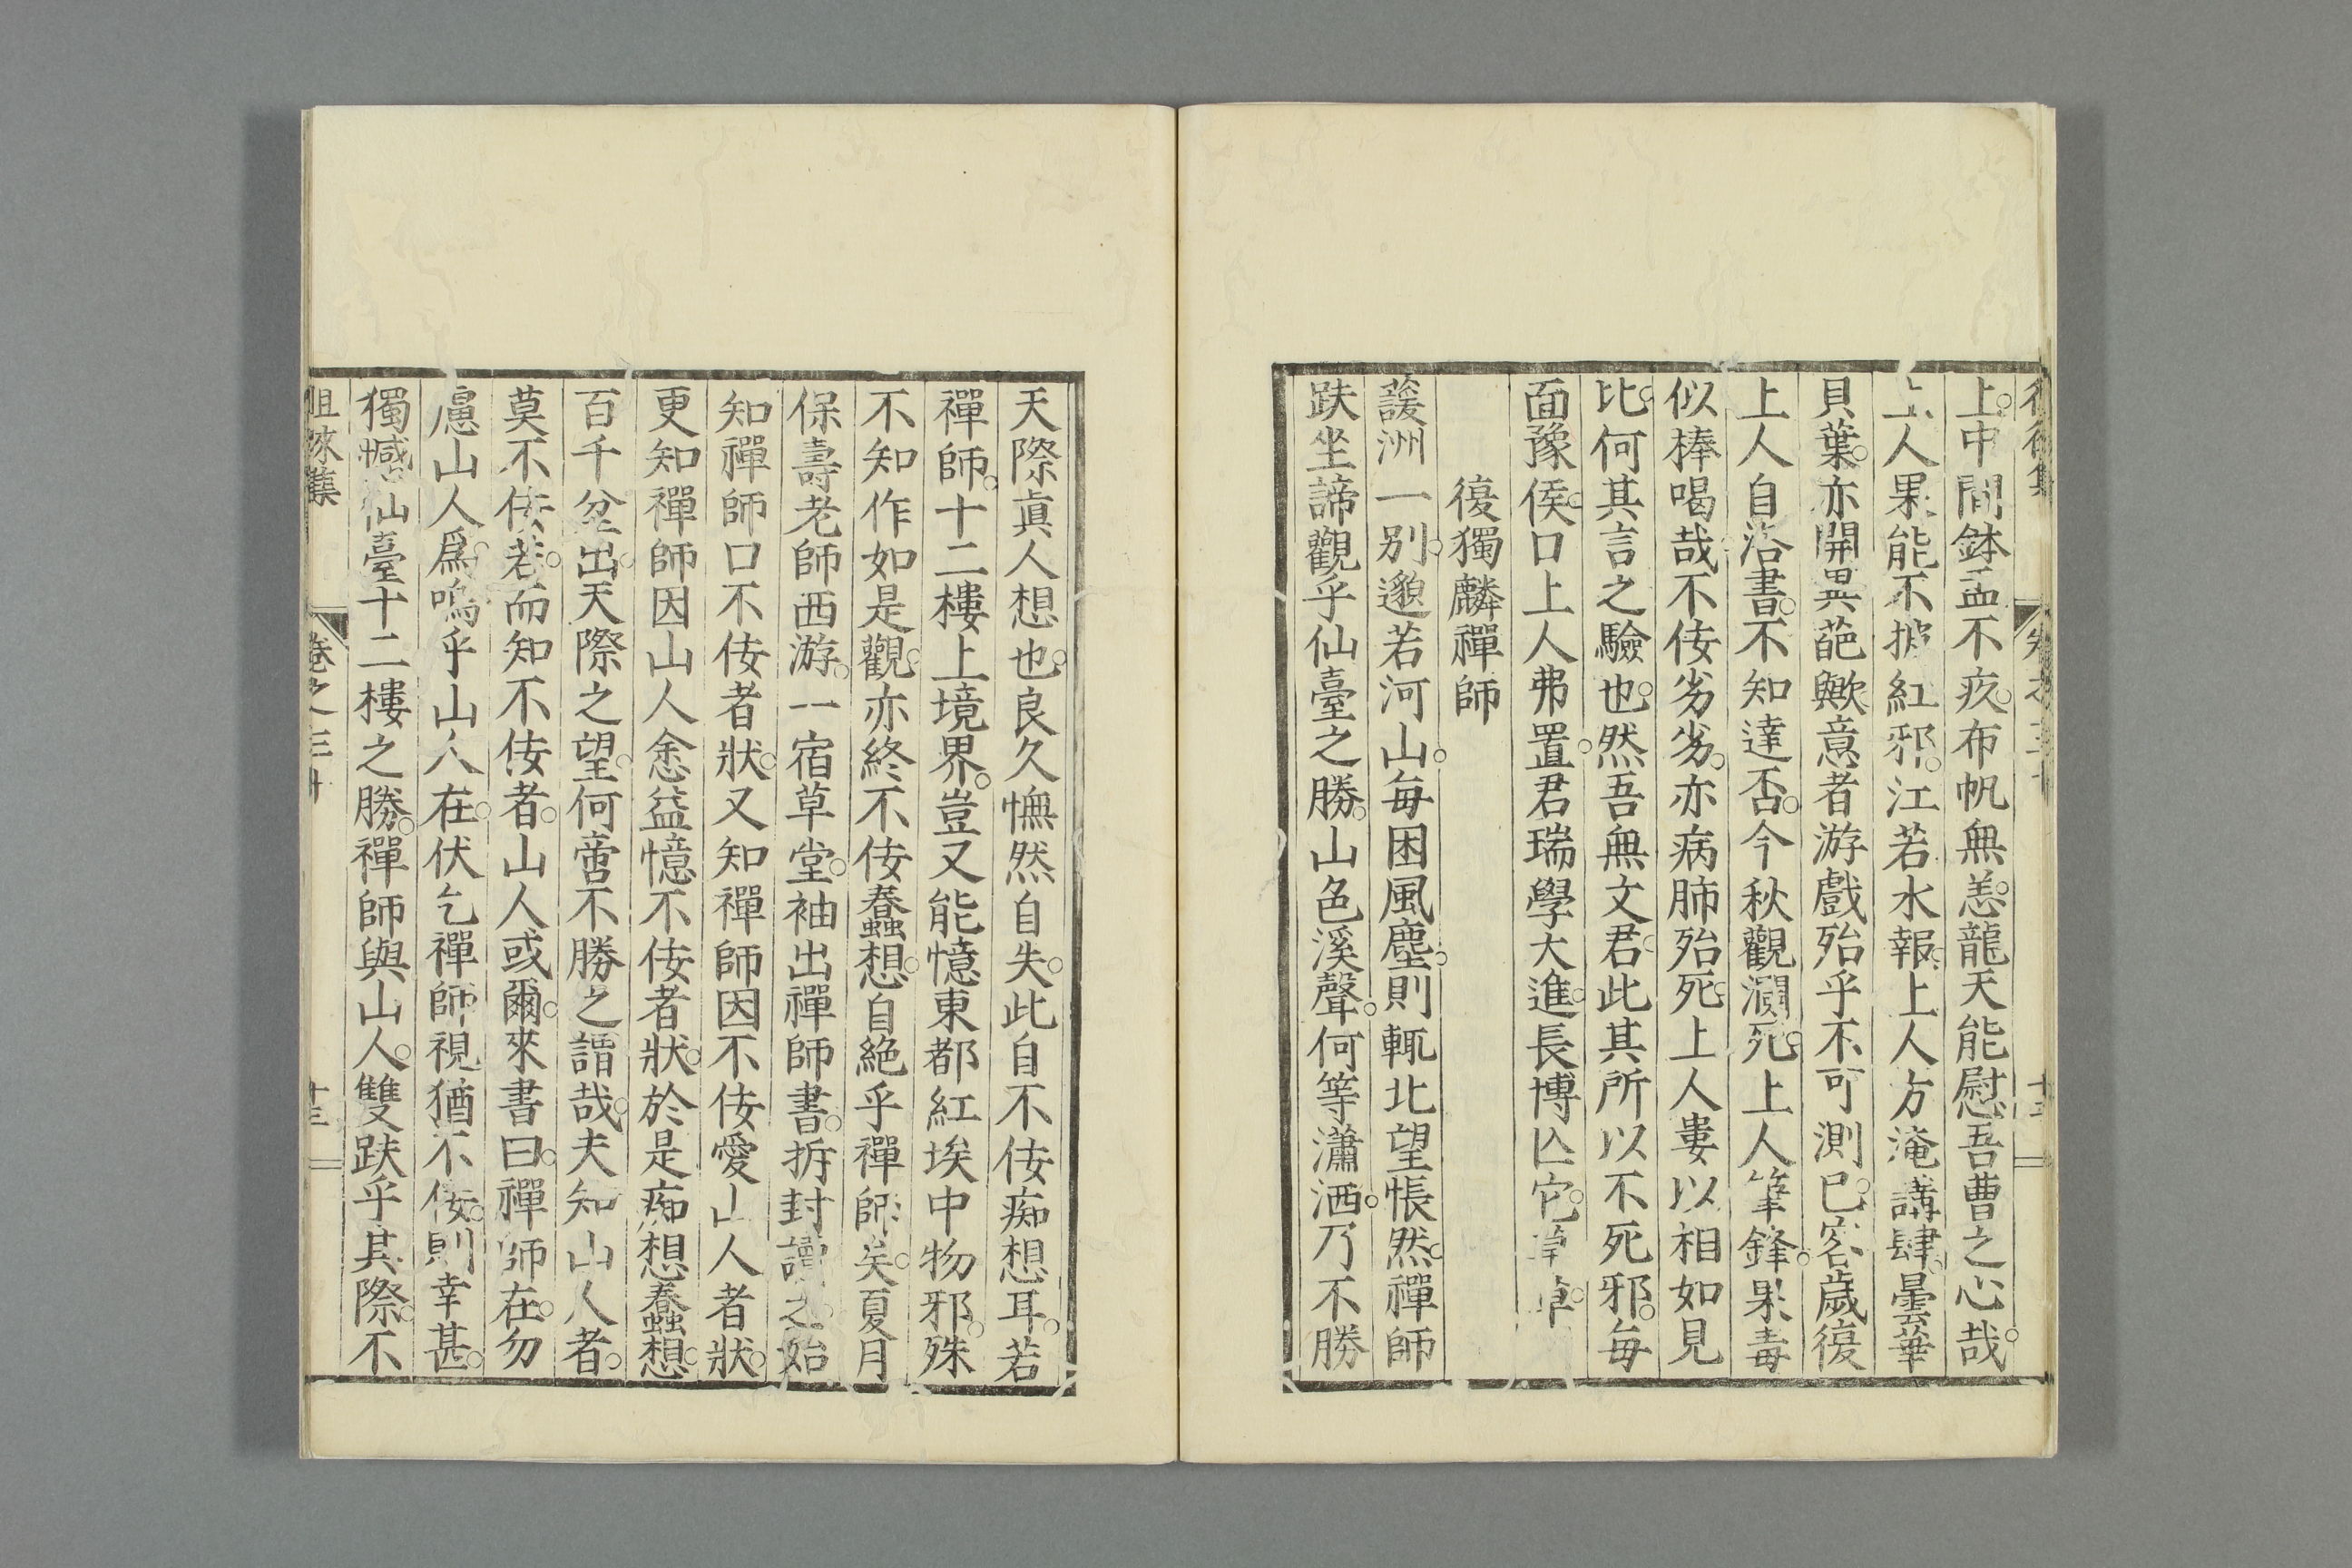 上。中間鉢盂不疚。布帆無恙。龍天能慰吾曹之心哉。
上人果能不披紅邪。江若水報。上人方淹講肆。曇華
貝葉。亦開異葩歟。意者游戲殆乎不可測已。客歲復
上人自洛書。不知達否。今秋觀瀾死。上人筆鋒。果毒
似棒喝哉。不佞劣劣。亦病肺殆死。上人婁以相如見
比。何其言之驗也。然吾無文君。此其所以不死邪。每
面豫侯。口上人弗置。君瑞學大進。長博亾它。草草。
復獨麟禪師
諼洲一別。邈若河山。每困風塵。則輒北望悵然。禪師
趺坐諦觀乎仙臺之勝。山色溪聲。何等瀟洒。乃不勝
天際眞人想也。良久憮然自失。此自不佞痴想耳。若
禪師。十二樓上境界。豈又能憶東都紅埃中物邪。殊
不知作如是觀。亦終不佞蠢想。自絶乎禪師矣。夏月
保壽老師西游。一宿草堂。袖出禪師書。拆封讀之。始
知禪師口不佞者狀。又知禪師因不佞愛山人者狀。
更知禪師因山人悆益憶不佞者狀。於是痴想蠢想。
百千坌出。天際之望。何啻不勝之謂哉。夫知山人者。
莫不佞若。而知不佞者。山人或爾。來書曰。禪師在。勿
慮山人爲。嗚乎山人在。伏乞禪師視猶不佞。則幸甚。
獨憾仙臺十二樓之勝。禪師與山人。雙趺乎其際。不
徂徠集 卷之三十 十三